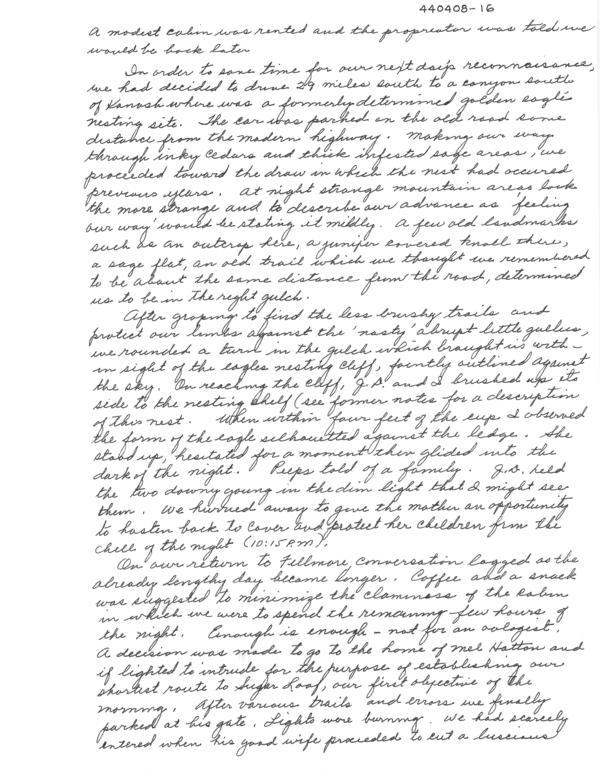 440408-16
A modest cabin was rented and the propriator was told we
would be back later
In order to save time for our next day's reconnaissance,
we had decided to drive 29 miles south to a canyon south
of Kanosh where was a formerly determined golden eagle
nesting site. The car was parked on the old road some
distance from the modern highway. Making our way
through inky cedars and thick infested sage areas, we
proceeded toward the draw in which the nest had occured
previous years. At night strange mountain areas look
the more strange and to describe our advance as 'feeling
our way' would be stating it mildly. A few old landmarks
such as an outcrop here, a juniper covered knoll there,
a sage flat, an old trail which we thought we remembered
to be about the same distance from the road, determined
us to be in the right gulch.
After groping to find the less brushy trails and
protect our limbs against the 'nasty' abrupt little gullies,
we rounded a turn in the gulch which brought us with-
in sight of the eagles nesting cliff, faintly outlined against
the sky. On reaching the cliff, J.D. and I brushed up its
side to the nesting shelf (see former notes for a description
of this nest. When within four feet of the cup I observed
the form of the eagle silhouetted against the ledge. She
stood up, hesitated for a moment then glided into the
dark of the night. Peeps told of a family. J.D. held
the two downy young in the dim light that I might see
them. We hurried away to give the mother an opportunity
to hasten back to cover and protect her children from the
chill of the night (10:15 P.M).
On our return to Fillmore, conversation lagged as the
already lengthy day became longer. Coffee and a snack
was suggested to minimize the claminess of the cabin
in which we were to spend the remaining few hours of
the night. Enough is enough - not for an oologist.
A decision was made to go to the home of Mel Hatton and
if lighted to intrude for the purpose of establishing our
shortest route to Sugar Loaf, our first objective of the
morning. After various trails and errors we finally
parked at his gate. Lights were burning. We had scarcely
entered when his good wife proceeded to cut a luscious